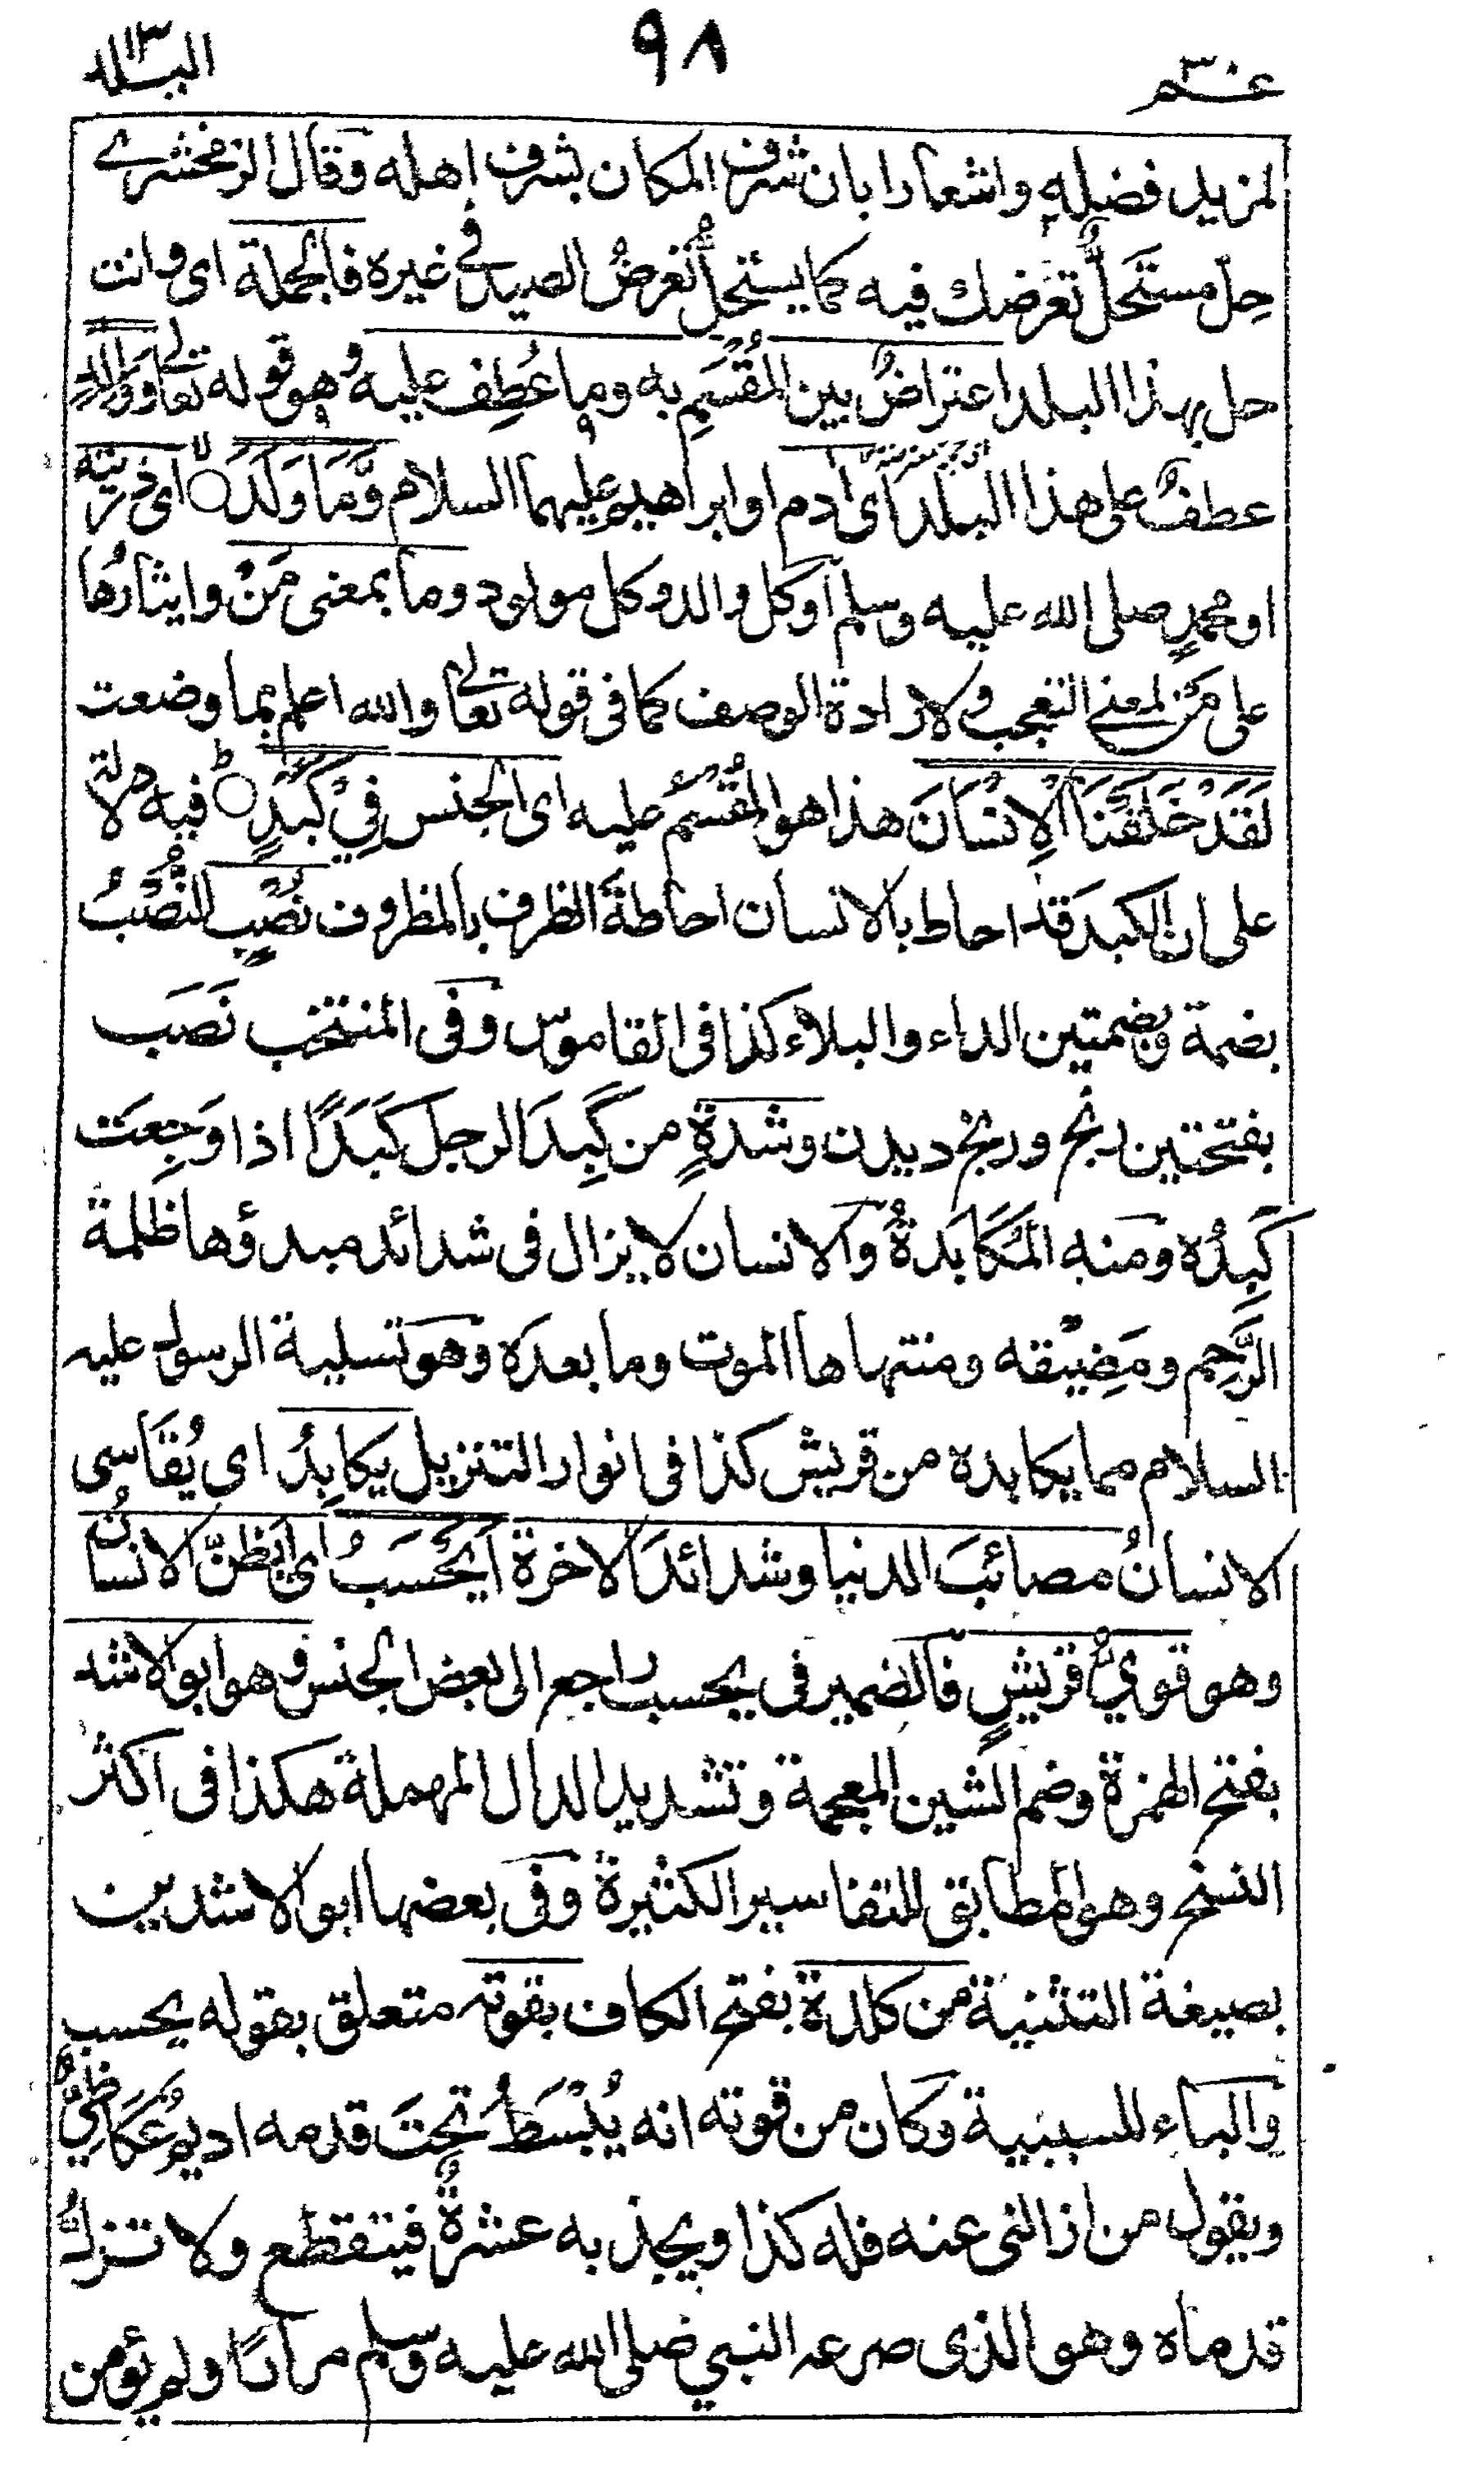 عم ٣٠
٩٨
البلد
لمزيد فضله واشعارا بان شرف المكان بشرف اهله وقال الزمخشرے
حِلّ مستَحَلٌّ تعرضك فيه كما يستحلُّ تعرضُ الصيد في غيره فالجملة اى وانت
حل بهذا البلد اعتراضٌ بين المُقْسَمِ به وما عُطِف عليه وهو قوله تعالى وَوَالِدٍ
عطفٌ على هذا البلد اى ادم او ابراهيم عليهما السلام وَّمَا وَلَدَ لا اى ذريته
او محمدٍ صلى الله عليه وسلم او كل والد وكل مولود وما بمعنى مَنْ وايثارُها
على مَن لمعنى التعجب ولارادة الوصف كما فى قوله تعالى والله اعلم بما وضعت
لَقَدْ خَلَقْنَا الْاِنْسَانَ هذا هو المُقْسَم عليه اى الجنس فِيْ كَبَدٍ ط فيه دلالة
على ان الكبد قد احاط بالانسان احاطةَ الظرف بالمظروف نَصَبٍ النُصْبُ
بضمة وبضمتين الداء والبلاء كذا فى القاموس وفى المنتخب نَصَب
بفتحتين رنج ورنج ديدن وشدةٍ من كَبِدَ الرجل كَبَدًا اذا وَجِعَت
كَبِدُه ومنه المُكَابَدةُ والانسان لا يزال فى شدائد مبدؤها ظلمة
الرَّحِم ومَضِيْقه ومنتهاها الموت وما بعده وهو تسلية الرسول عليه
السلام مما يكابده من قريش كذا فى انوار التنزيل يكابِدُ اى يُقَاسى
الانسانُ مصائبَ الدنيا وشدائدَ الاخرة اَيَحْسَبُ اى ايظنّ الانسانُ
وهو قويُّ قريشٍ فالضمير فى يحسب راجع الى بعض الجنس وهو ابو الاشد
بفتح الهمزة وضم الشين المعجمة وتشديد الدال المهملة هكذا فى اكثر
النسخ وهو المطابق للتفاسير الكثيرة وفى بعضها ابو الاشدين
بصيغة التثنية من كلدة بفتح الكاف بقوته متعلق بقوله يحسب
والباء للسببية وكان من قوته انه يُبْسَطُ تحتَ قدمه اديم عُكَاظِيٌّ
ويقول من ازالنى عنه فله كذا ويجذ به عشرةٌ فيتقطع ولا تزلّ
قدماه وهو الذى صرعه النبي صلى الله عليه وسلم مرارًا ولم يؤمن